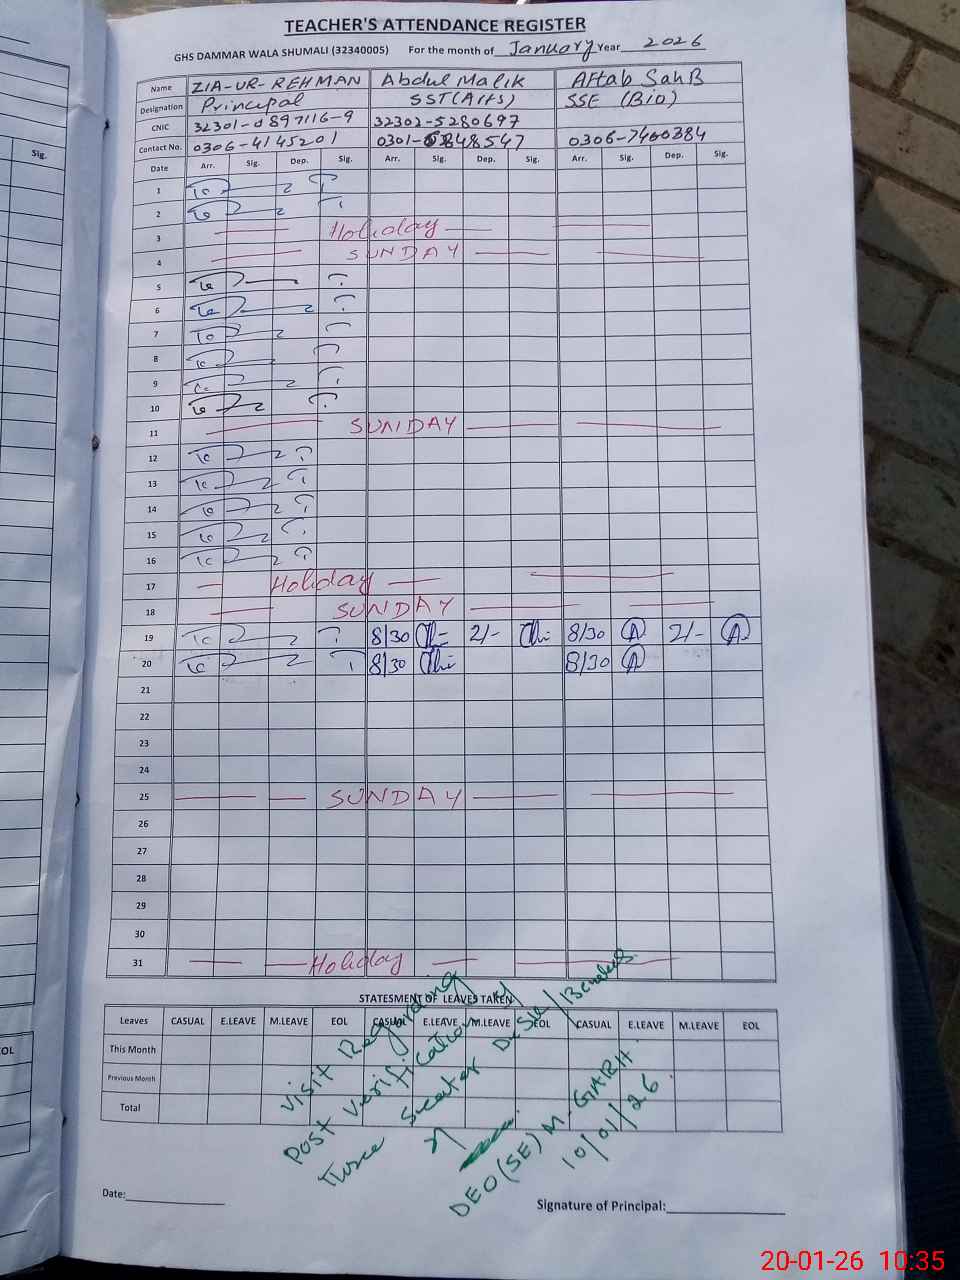 TEACHER'S ATTENDANCE REGISTER
GHS DAMMAR WALA SHUMALI (32340005) For the month of January Year 2026
Name ZIA-UR-REHMAN Abdul Malik Aftab
Designation Principal SST (Arts) SSE (Bio)
CNIC 32301-0897116-9 32302-5280697
Contact No. 0306-4145201 0306-7460384
Date Arr. Sig. Dep. Sig. Arr. Sig. Dep. Sig. Arr. Sig. Dep. Sig.
1
2
3 Holiday
4 SUNDAY
5
6
7
8
9
10
11 SUNDAY
12
13
14
15
16
17 Holiday
18 SUNDAY
19 8/30 2/- 8/30 2/-
20 8/30 8/30
21
22
23
24
25 SUNDAY
26
27
28
29
30
31 Holiday
STATESMENT OF LEAVES TAKEN
Leaves CASUAL E.LEAVE M.LEAVE EOL CASUAL E.LEAVE M.LEAVE EOL CASUAL E.LEAVE M.LEAVE EOL
This Month
Previous Month
Total
visit Regarding
post verification
DEO(SE) M-GARH.
10/01/26.
Date:
Signature of Principal:
Sig.
OL
20-01-26 10:35